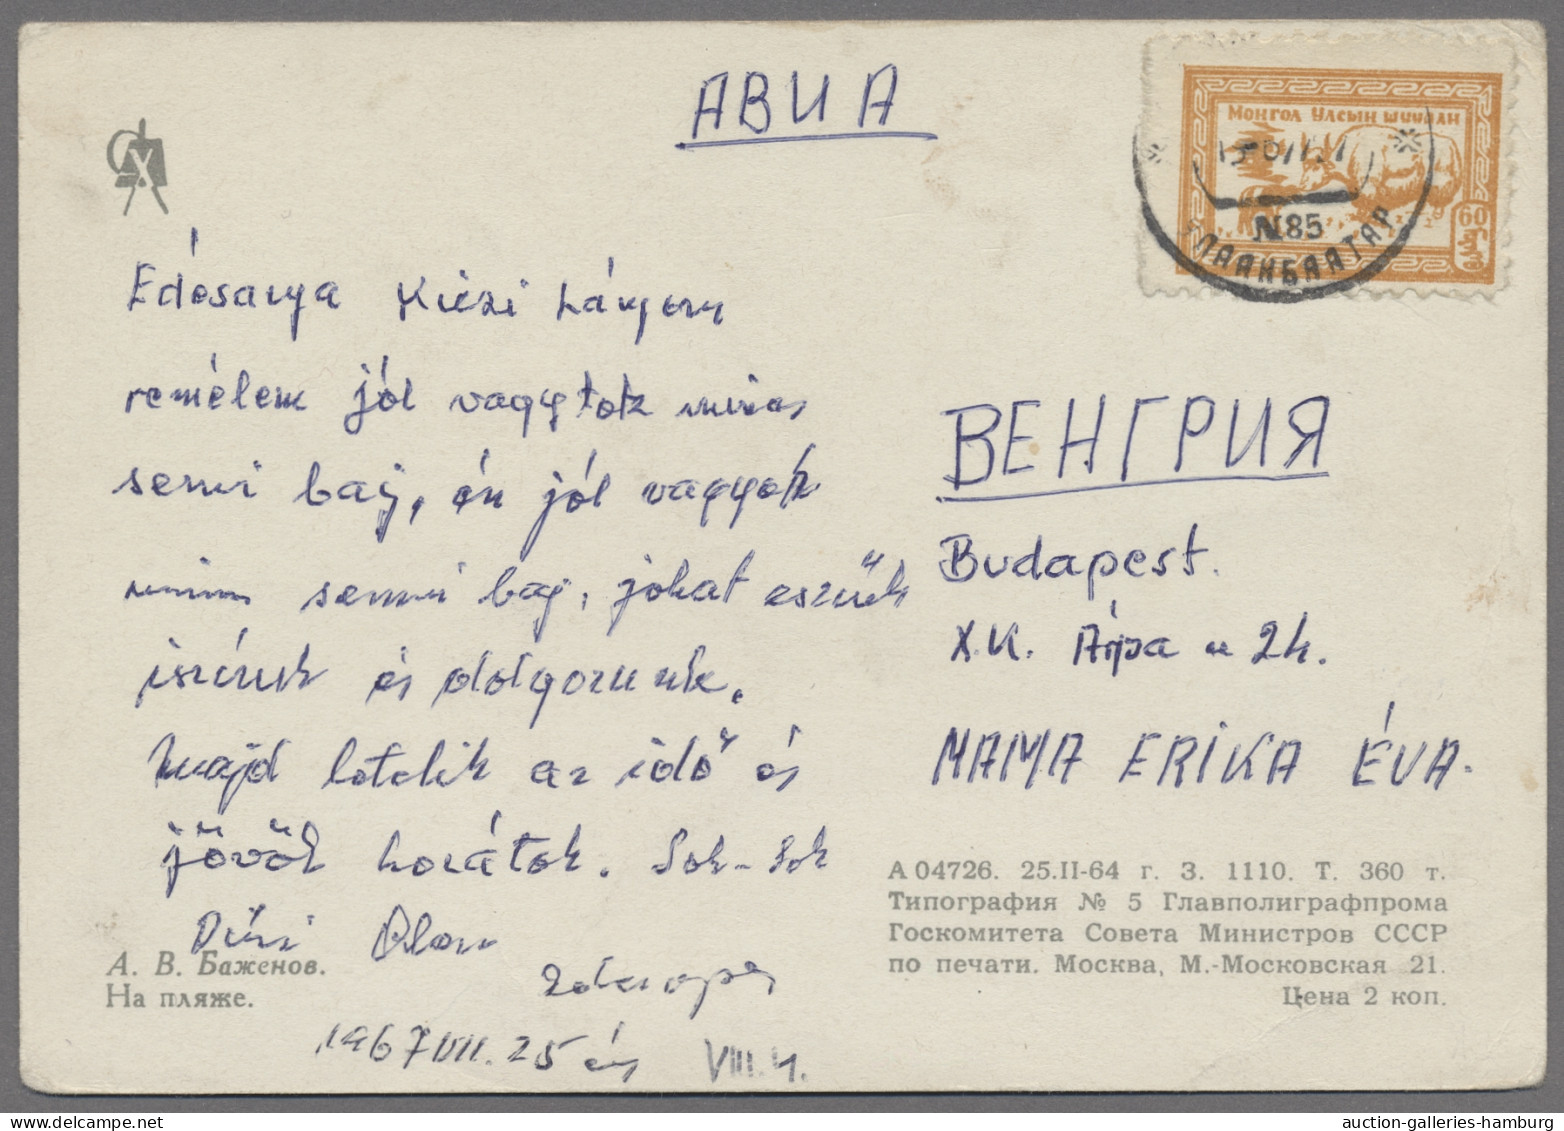 АВИА
МОНГОЛ УЛСЫН ШУУДАН
60
N85
УЛААНБААТАР
Edésanya Kiczi Lányom
remélem jól vagytok nincs
semi baj, én jól vagyok
nincs semmi baj, jokat eszünk
iszunk és dolgozunk.
majd letelik az idő és
jövök hozátok. Sok-Sok
1967 VII. 25 én
VIII.4.
ВЕНГРИЯ
Budapest.
X.K. Árpa u 24.
MAMA ERIKA ÉVA.
А. В. Баженов.
На пляже.
А 04726. 25.II-64 г. З. 1110. Т. 360 т.
Типография № 5 Главполиграфпрома
Госкомитета Совета Министров СССР
по печати. Москва, М.-Московская 21.
Цена 2 коп.
auction-galleries-hamburg